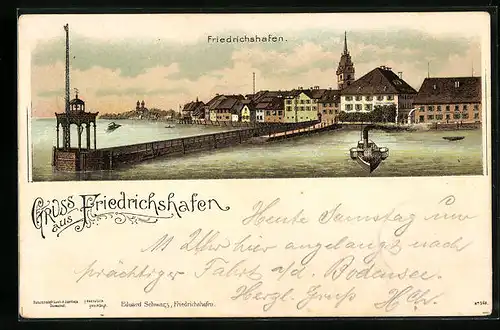 Friedrichshafen.
Gruss aus Friedrichshafen
Heute Samstag um
11 Uhr hier angelangt nach
prächtiger Fahrt a/d. Bodensee.
Hergl. Gruß
Eduard Schwarz, Friedrichshafen.